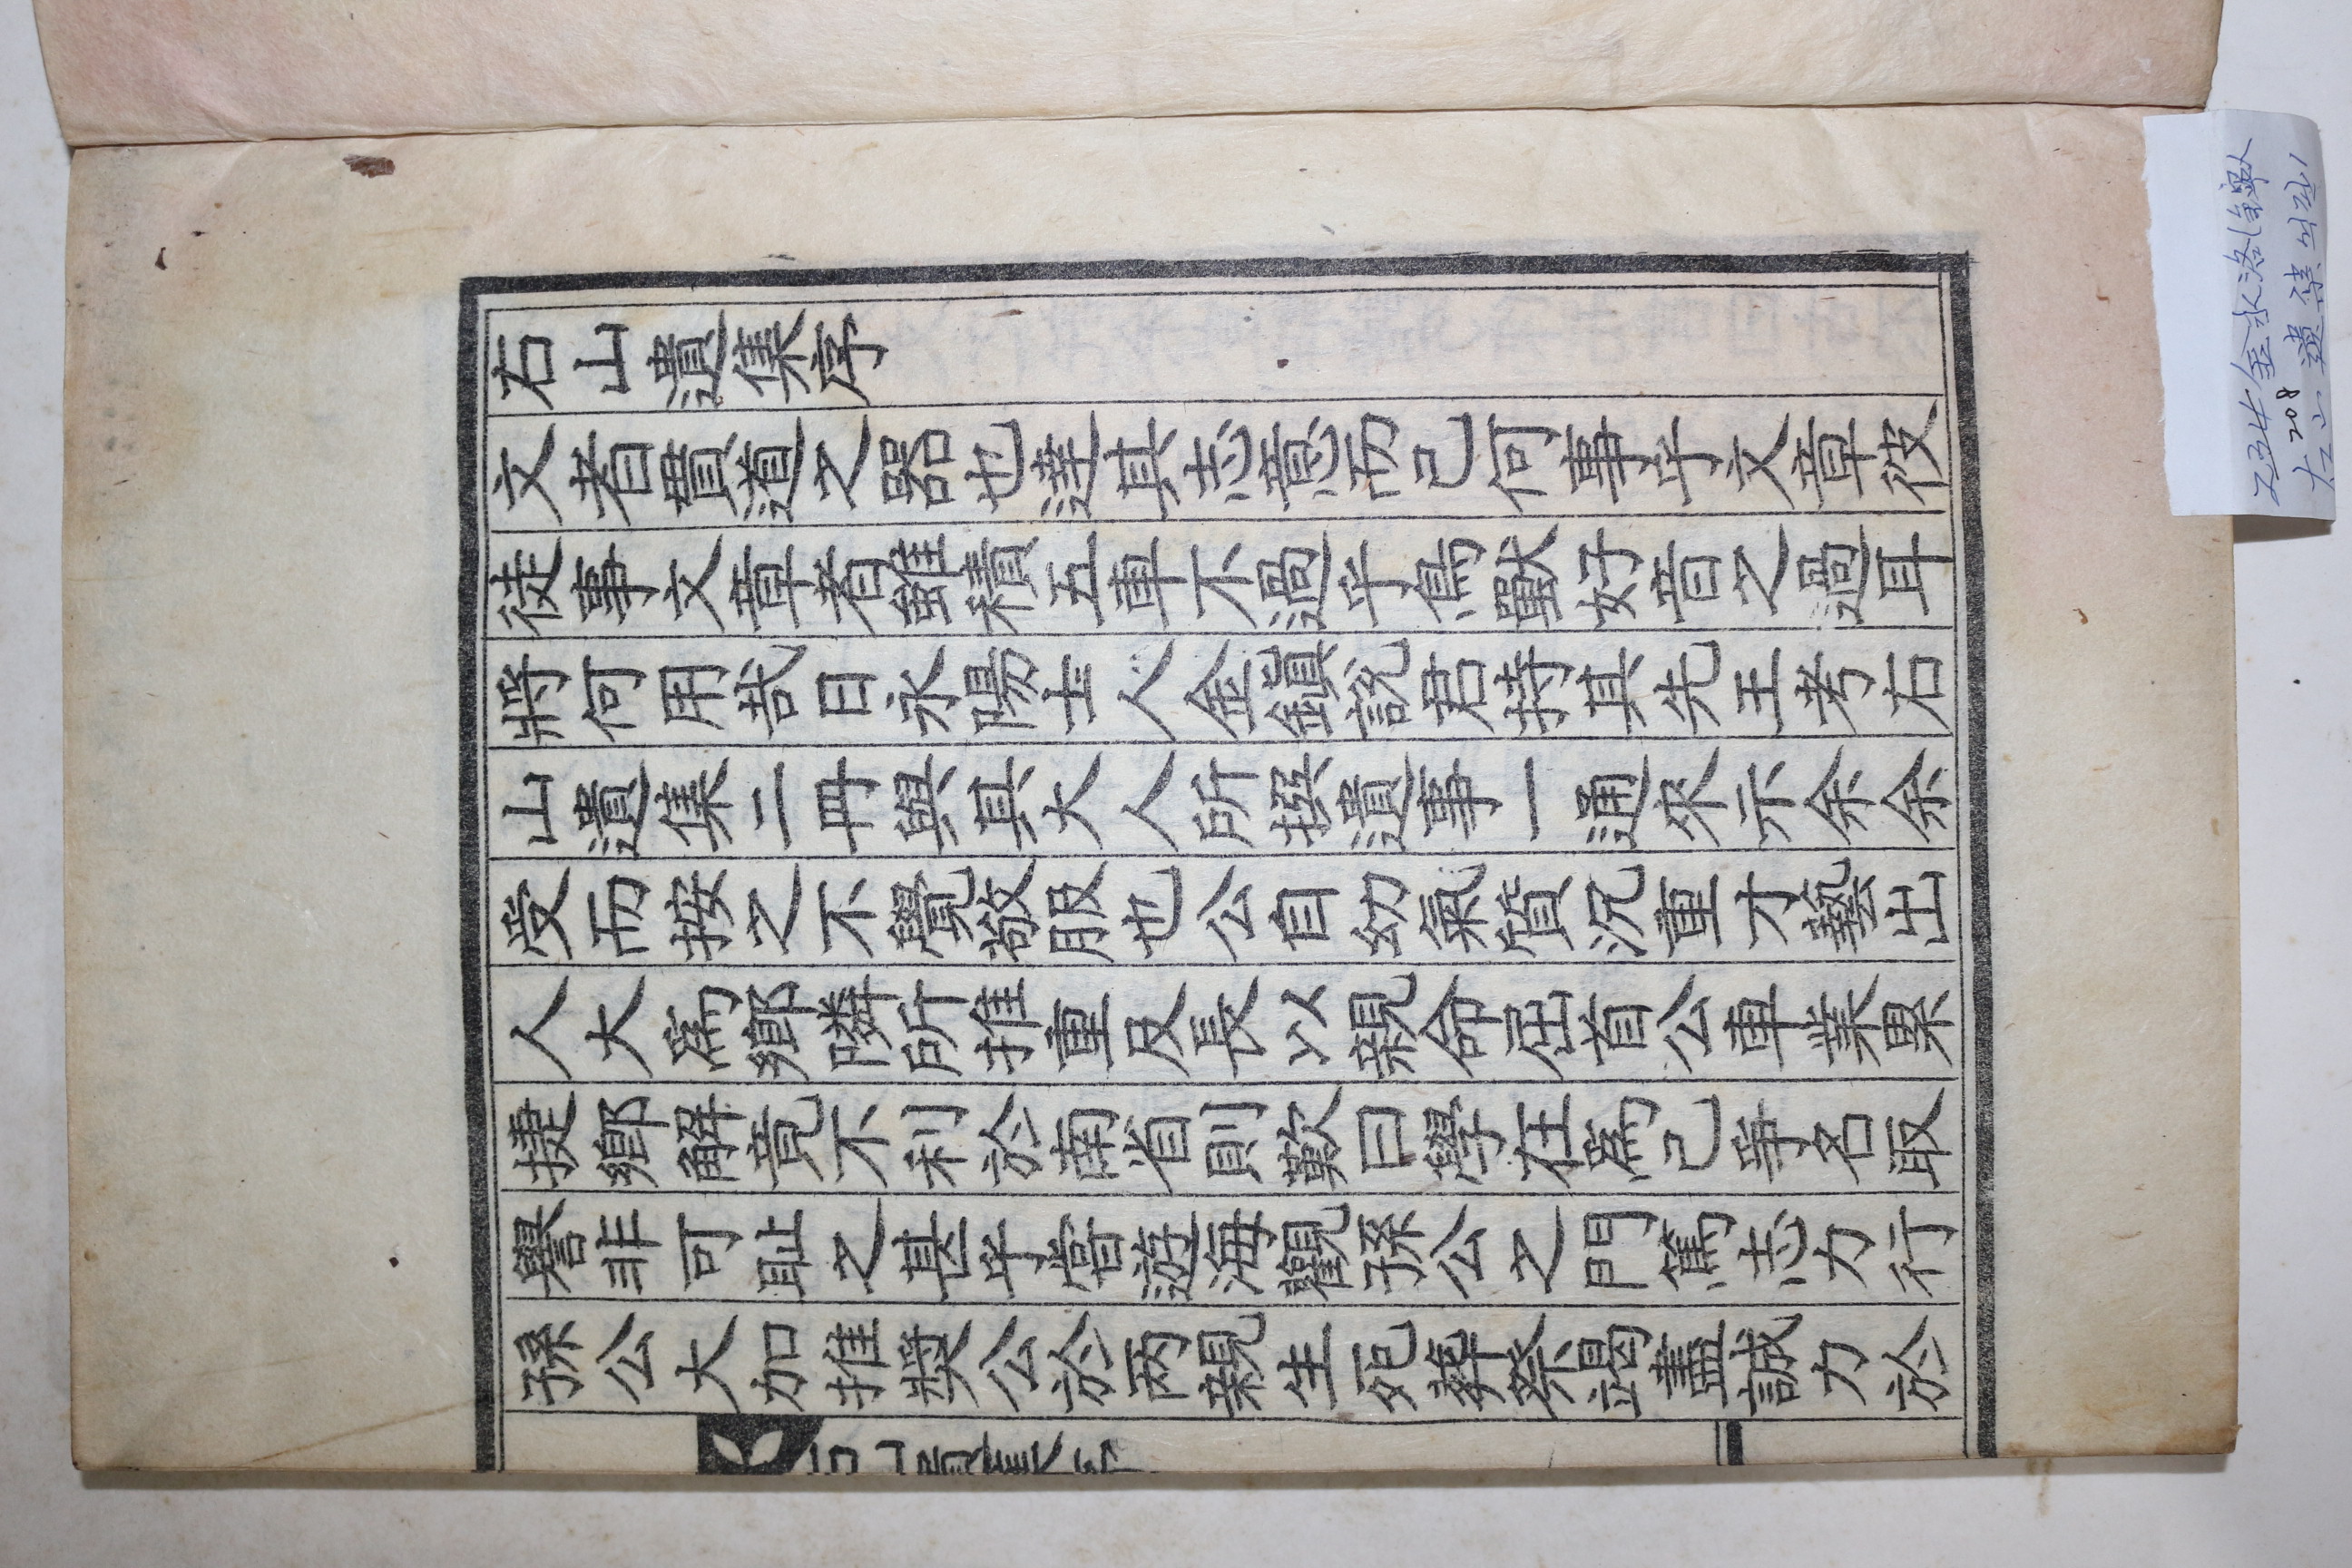 右山遺集序
文者貫道之器也達其志意而已何事乎文章彼
徒事文章者雖積五車不過乎鳥獸好音之過耳
將何用哉日永陽士人金鎭說君持其先王考右
山遺集二冊與其大人所撰遺事一通來示余余
受而按之不覺敬服也公自幼氣質沉重才藝出
人大爲鄉隣所推重及長以親命屈首公車業累
捷鄉解竟不利於南省則歎曰學在爲己爭名取
譽非可耻之甚乎嘗遊海觀孫公之門篤志力行
孫公大加推奬公於两親生死葬祭竭盡誠力於
右山遺集序
金永洛
208
右山遺集